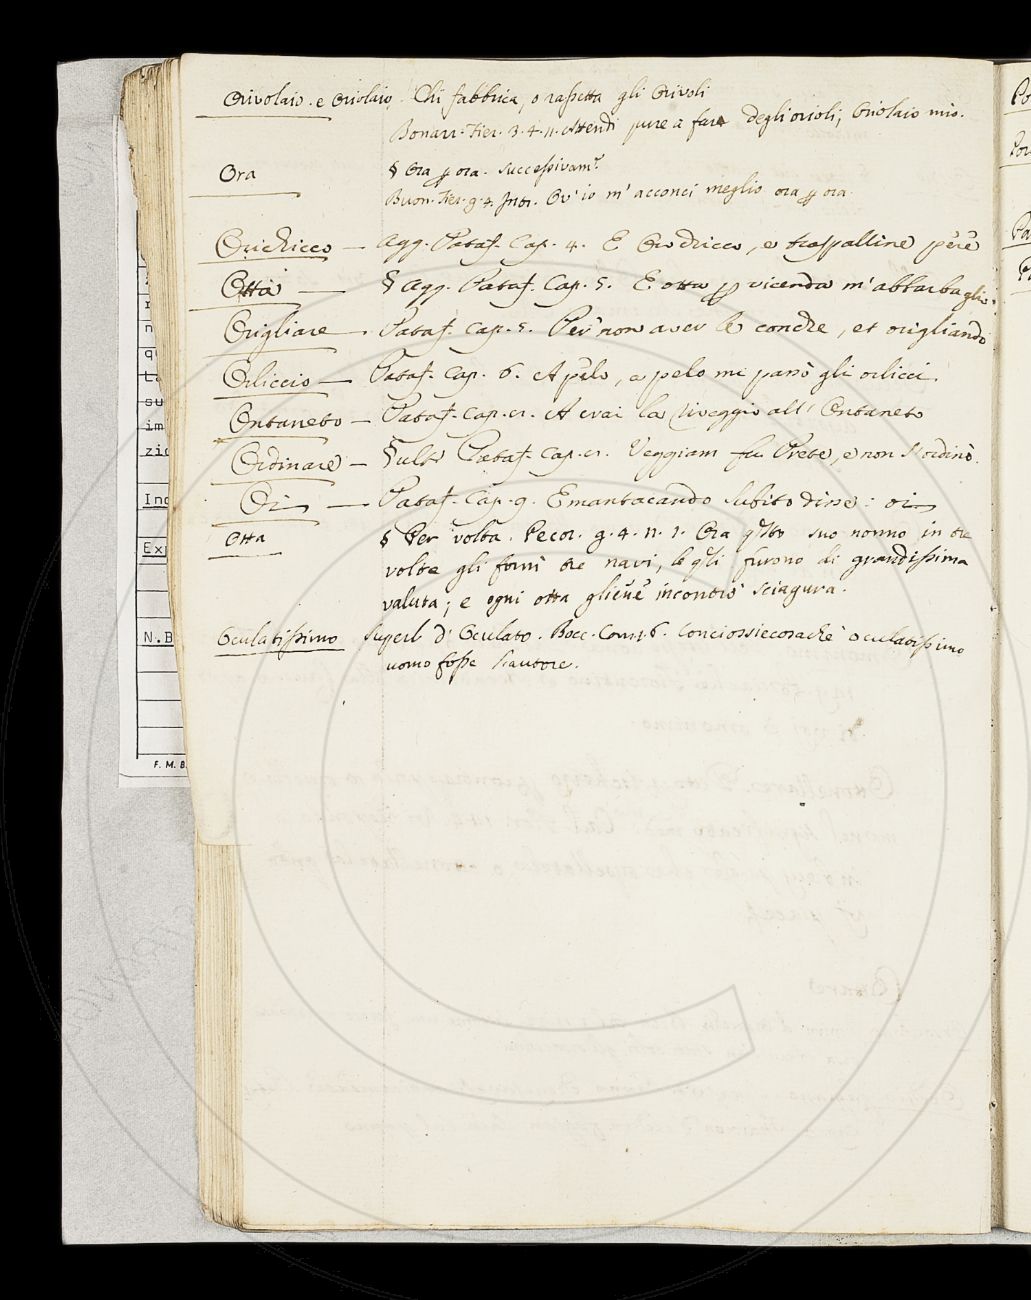 Orivolaio. e Oriolaio. Chi fabbrica, o rassetta gli Orivoli
Bonarr. Fier. 3. 4. 11. Attendi pure a fare degli orioli, Oriolaio mio.
Ora § Ora ꝑ ora. Successivamᵉ
Buon. Fier. g. 4. Intr. Ov' io m' acconci meglio ora ꝑ ora.
Orichicco — Agg. Pataf. Cap. 4. E Orochicco, e traspalline
Otta — § Agg. Pataf. Cap. 5. E otta ꝑ vicenda m'abbarbaglio
Origliare. Pataf. Cap. 5. Per non aver le conche, et origliando
Orliccio — Pataf. Cap. 6. A pelo, a pelo mi passò gli orlicci.
Ontaneto — Pataf. Cap. A crai la riveggio all' Ontaneto
Ordinare — § ult. Pataf. Cap. Veggiam fu Prete, e non s'ordinò.
Oi — Pataf. Cap. 9. E mantacando subito disse: oi
Otta § Per volta. Pecor. g. 4. n. 1. Ora suo nonno in tre
volte gli fornì tre navi, le furono di grandissima
valuta; e ogni otta incontrò sciagura.
Oculatissimo Superl. d' Oculato. Bocc. Com. 6. Conciossiecosachè oculatissimo
uomo fosse l'autore.
N.B
F. M. B.